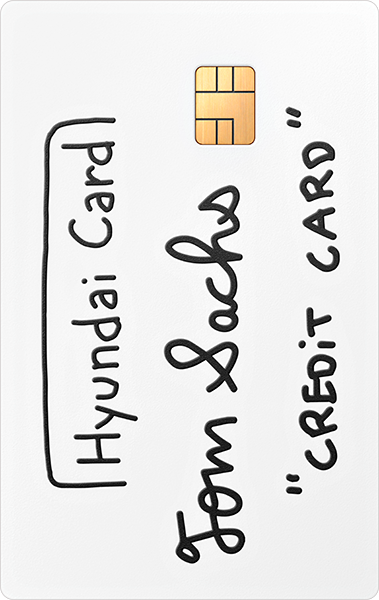 Hyundai Card
Tom Sachs
"CREDiT CARD"